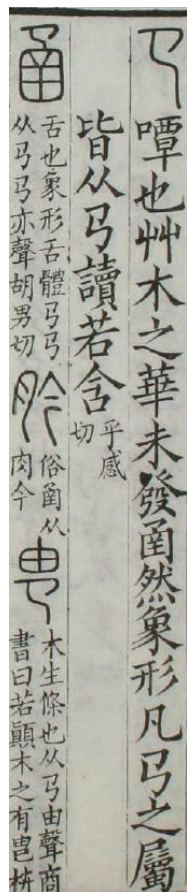 𢎘嘾也艸木之華未發圅然象形凡𢎘之屬
皆从𢎘讀若含乎感
切
圅舌也象形舌體𢎘𢎘
从𢎘𢎘亦聲胡男切
肣俗圅从
肉今
𤰕木生條也从𢎘由聲商
書曰若顛木之有㽕枿